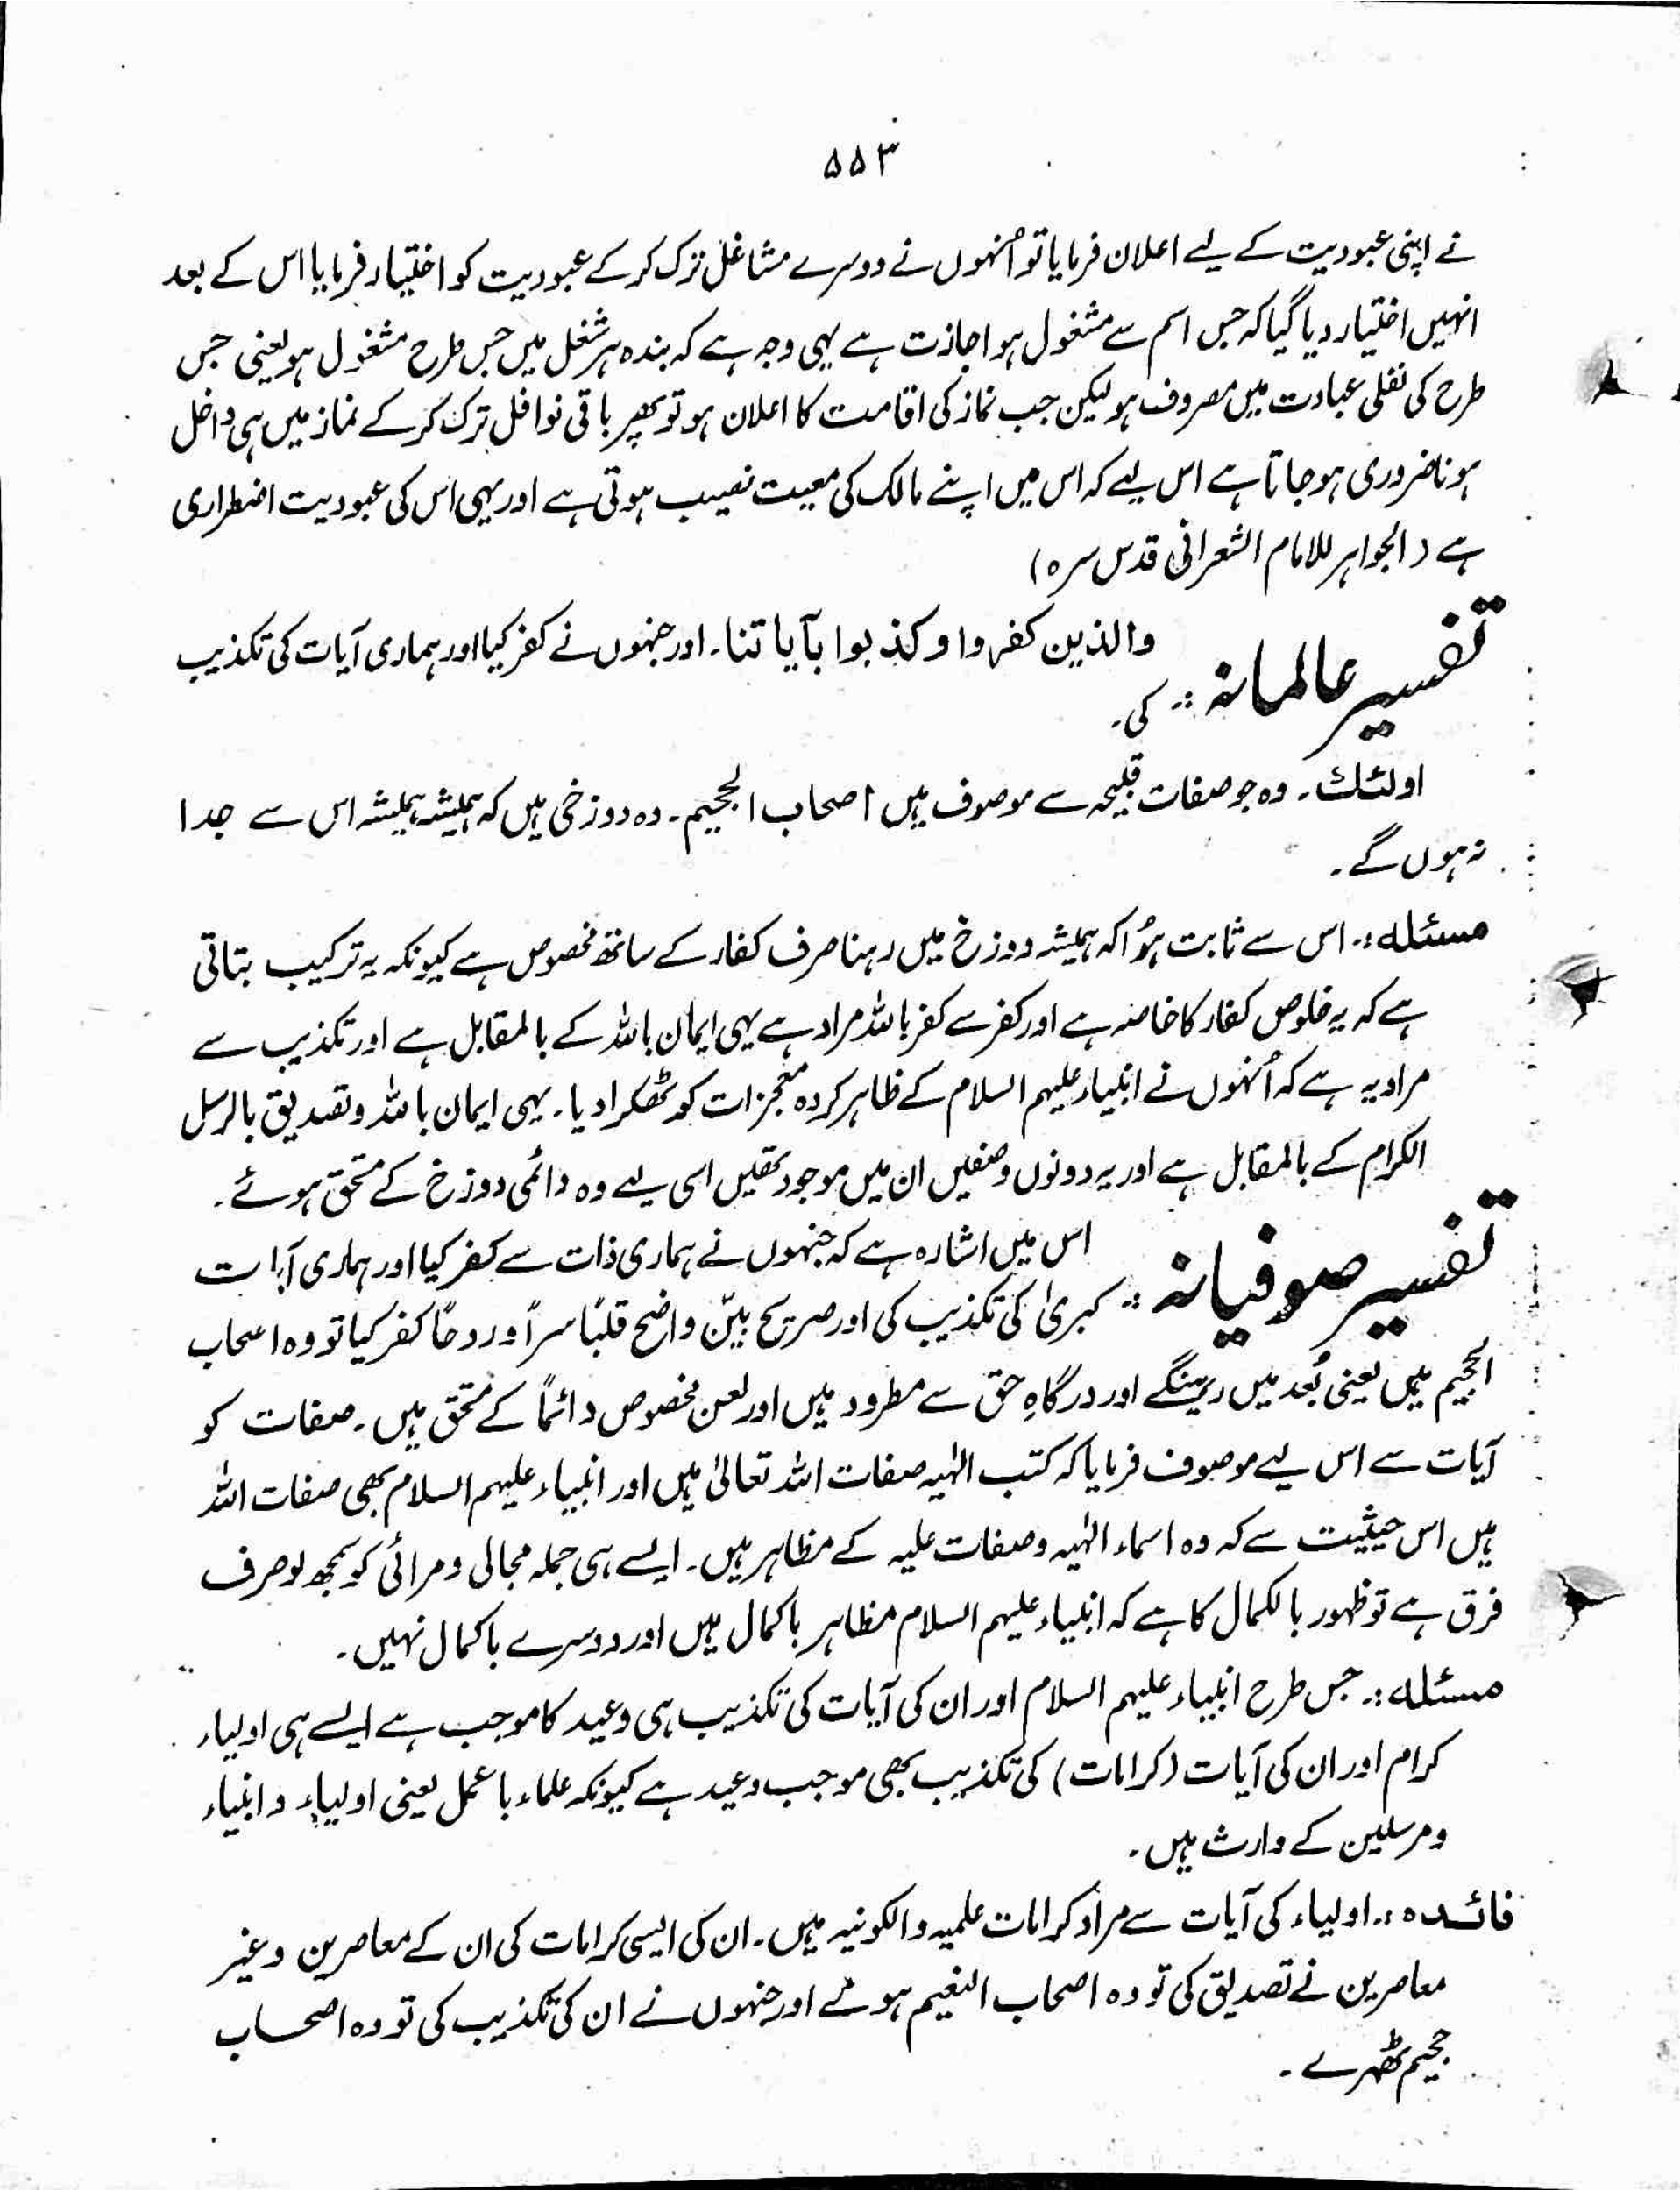 ۵۵۳
نے اپنی عبودیت کے لیے اعلان فرمایا تو اُنہوں نے دوسرے مشاغل ترک کر کے عبودیت کو اختیار فرمایا اس کے بعد
انہیں اختیار دیا گیا کہ جس اسم سے مشغول ہو اجازت ہے یہی وجہ ہے کہ بندہ ہر شغل میں جس طرح مشغول ہو یعنی جس
طرح کی نفلی عبادت میں مصروف ہو لیکن جب نماز کی اقامت کا اعلان ہو تو پھر باقی نوافل ترک کر کے نماز میں ہی داخل
ہونا ضروری ہو جاتا ہے اس لیے کہ اس میں اپنے مالک کی معیت نصیب ہوتی ہے اور یہی اس کی عبودیت اضطراری
ہے (الجواہر للامام الشعرانی قدس سرہ)
تفسیر عالمانہ :- والذین کفروا وکذبوا بآیاتنا۔ اور جنہوں نے کفر کیا اور ہماری آیات کی تکذیب
کی۔
اولئک۔ وہ جو صفات قبیحہ سے موصوف ہیں اصحاب الجحیم۔ وہ دوزخی ہیں کہ ہمیشہ ہمیشہ اس سے جدا
نہ ہوں گے۔
مسئلہ :۔ اس سے ثابت ہوُا کہ ہمیشہ دوزخ میں رہنا صرف کفار کے ساتھ مخصوص ہے کیونکہ یہ ترکیب بتاتی
ہے کہ یہ خلوص کفار کا خاصہ ہے اور کفر سے کفر باللہ مراد ہے یہی ایمان باللہ کے بالمقابل ہے اور تکذیب سے
مراد یہ ہے کہ اُنہوں نے انبیاء علیہم السلام کے ظاہر کردہ معجزات کو ٹھکرا دیا۔ یہی ایمان باللہ وتصدیق بالرسل
الکرام کے بالمقابل ہے اور یہ دونوں وصفیں ان میں موجود تھیں اسی لیے وہ دائمی دوزخ کے مستحق ہوئے۔
تفسیر صوفیانہ :- اس میں اشارہ ہے کہ جنہوں نے ہماری ذات سے کفر کیا اور ہماری آیات
کبریٰ کی تکذیب کی اور صریح بیّن واضح قلبًا سراً و روحًا کفر کیا تو وہ اصحاب
الجحیم ہیں یعنی بُعد میں رہینگے اور درگاہِ حق سے مطرود ہیں اور لعن مخصوص دائماً کے مستحق ہیں۔ صفات کو
آیات سے اس لیے موصوف فرمایا کہ کتب الٰہیہ صفات اللہ تعالیٰ ہیں اور انبیاء علیہم السلام بھی صفات اللہ
ہیں اس حیثیت سے کہ وہ اسماء الٰہیہ وصفات علیہ کے مظاہر ہیں۔ ایسے ہی جملہ مجالی و مرائی کو سمجھ لو صرف
فرق ہے تو ظہور بالکمال کا ہے کہ انبیاء علیہم السلام مظاہر باکمال ہیں اور دوسرے باکمال نہیں۔
مسئلہ :۔ جس طرح انبیاء علیہم السلام اور ان کی آیات کی تکذیب ہی وعید کا موجب ہے ایسے ہی اولیاء
کرام اور ان کی آیات (کرامات) کی تکذیب بھی موجب وعید ہے کیونکہ علماء باعمل یعنی اولیاء و انبیاء
ومرسلین کے وارث ہیں۔
فائدہ :۔ اولیاء کی آیات سے مراد کرامات علمیہ والکونیہ ہیں۔ ان کی ایسی کرامات کی ان کے معاصرین وغیر
معاصرین نے تصدیق کی تو وہ اصحاب النعیم ہوئے اور جنہوں نے ان کی تکذیب کی تو وہ اصحاب
جحیم ٹھہرے۔